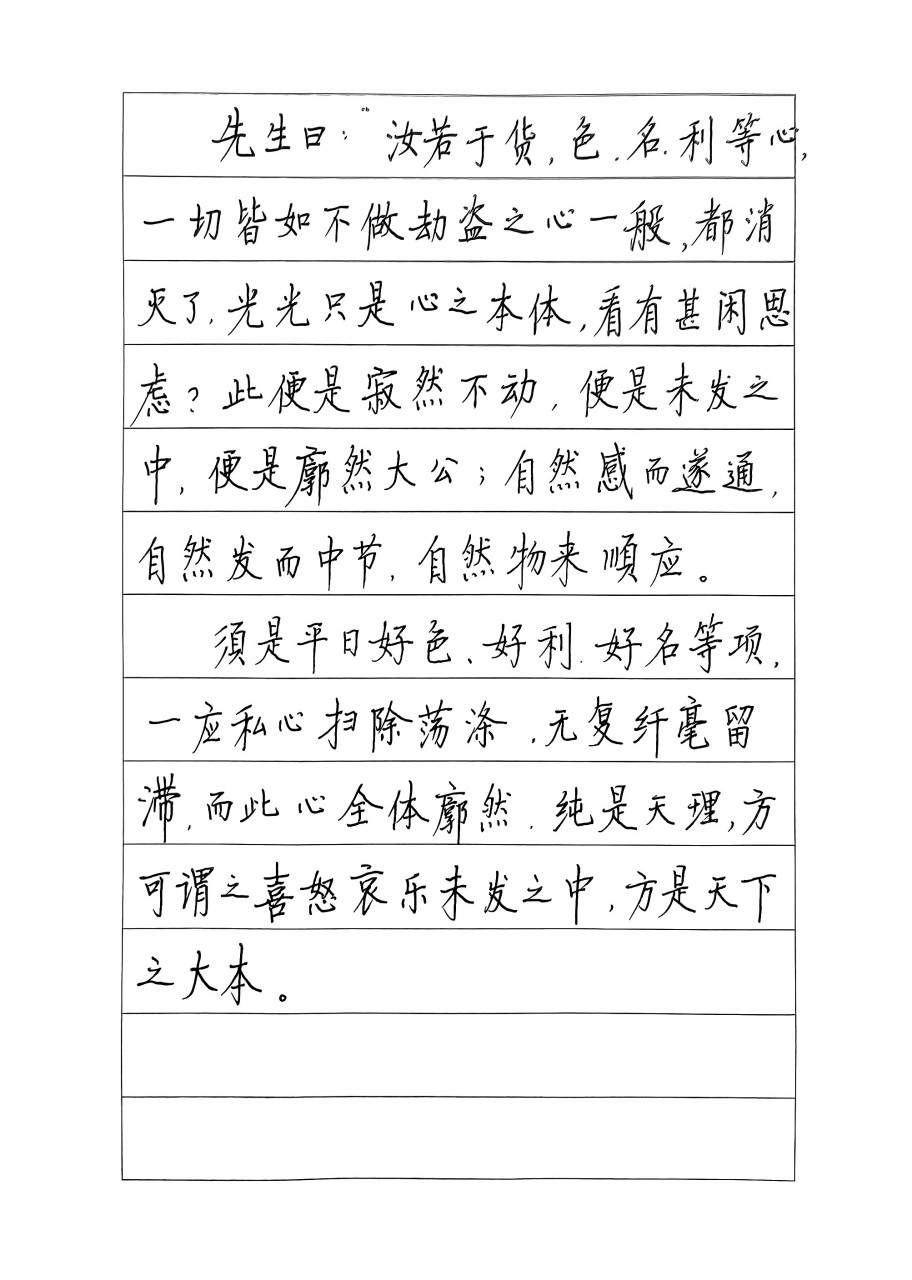 先生曰：“汝若于货，色．名．利等心，
一切皆如不做劫盗之心一般，都消
灭了，光光只是心之本体，看有甚闲思
虑？此便是寂然不动，便是未发之
中，便是廓然大公；自然感而遂通，
自然发而中节，自然物来順应。
須是平日好色、好利．好名等项，
一应私心扫除荡涤，无复纤毫留
滞，而此心全体廓然．纯是天理，方
可谓之喜怒哀乐未发之中，方是天下
之大本。